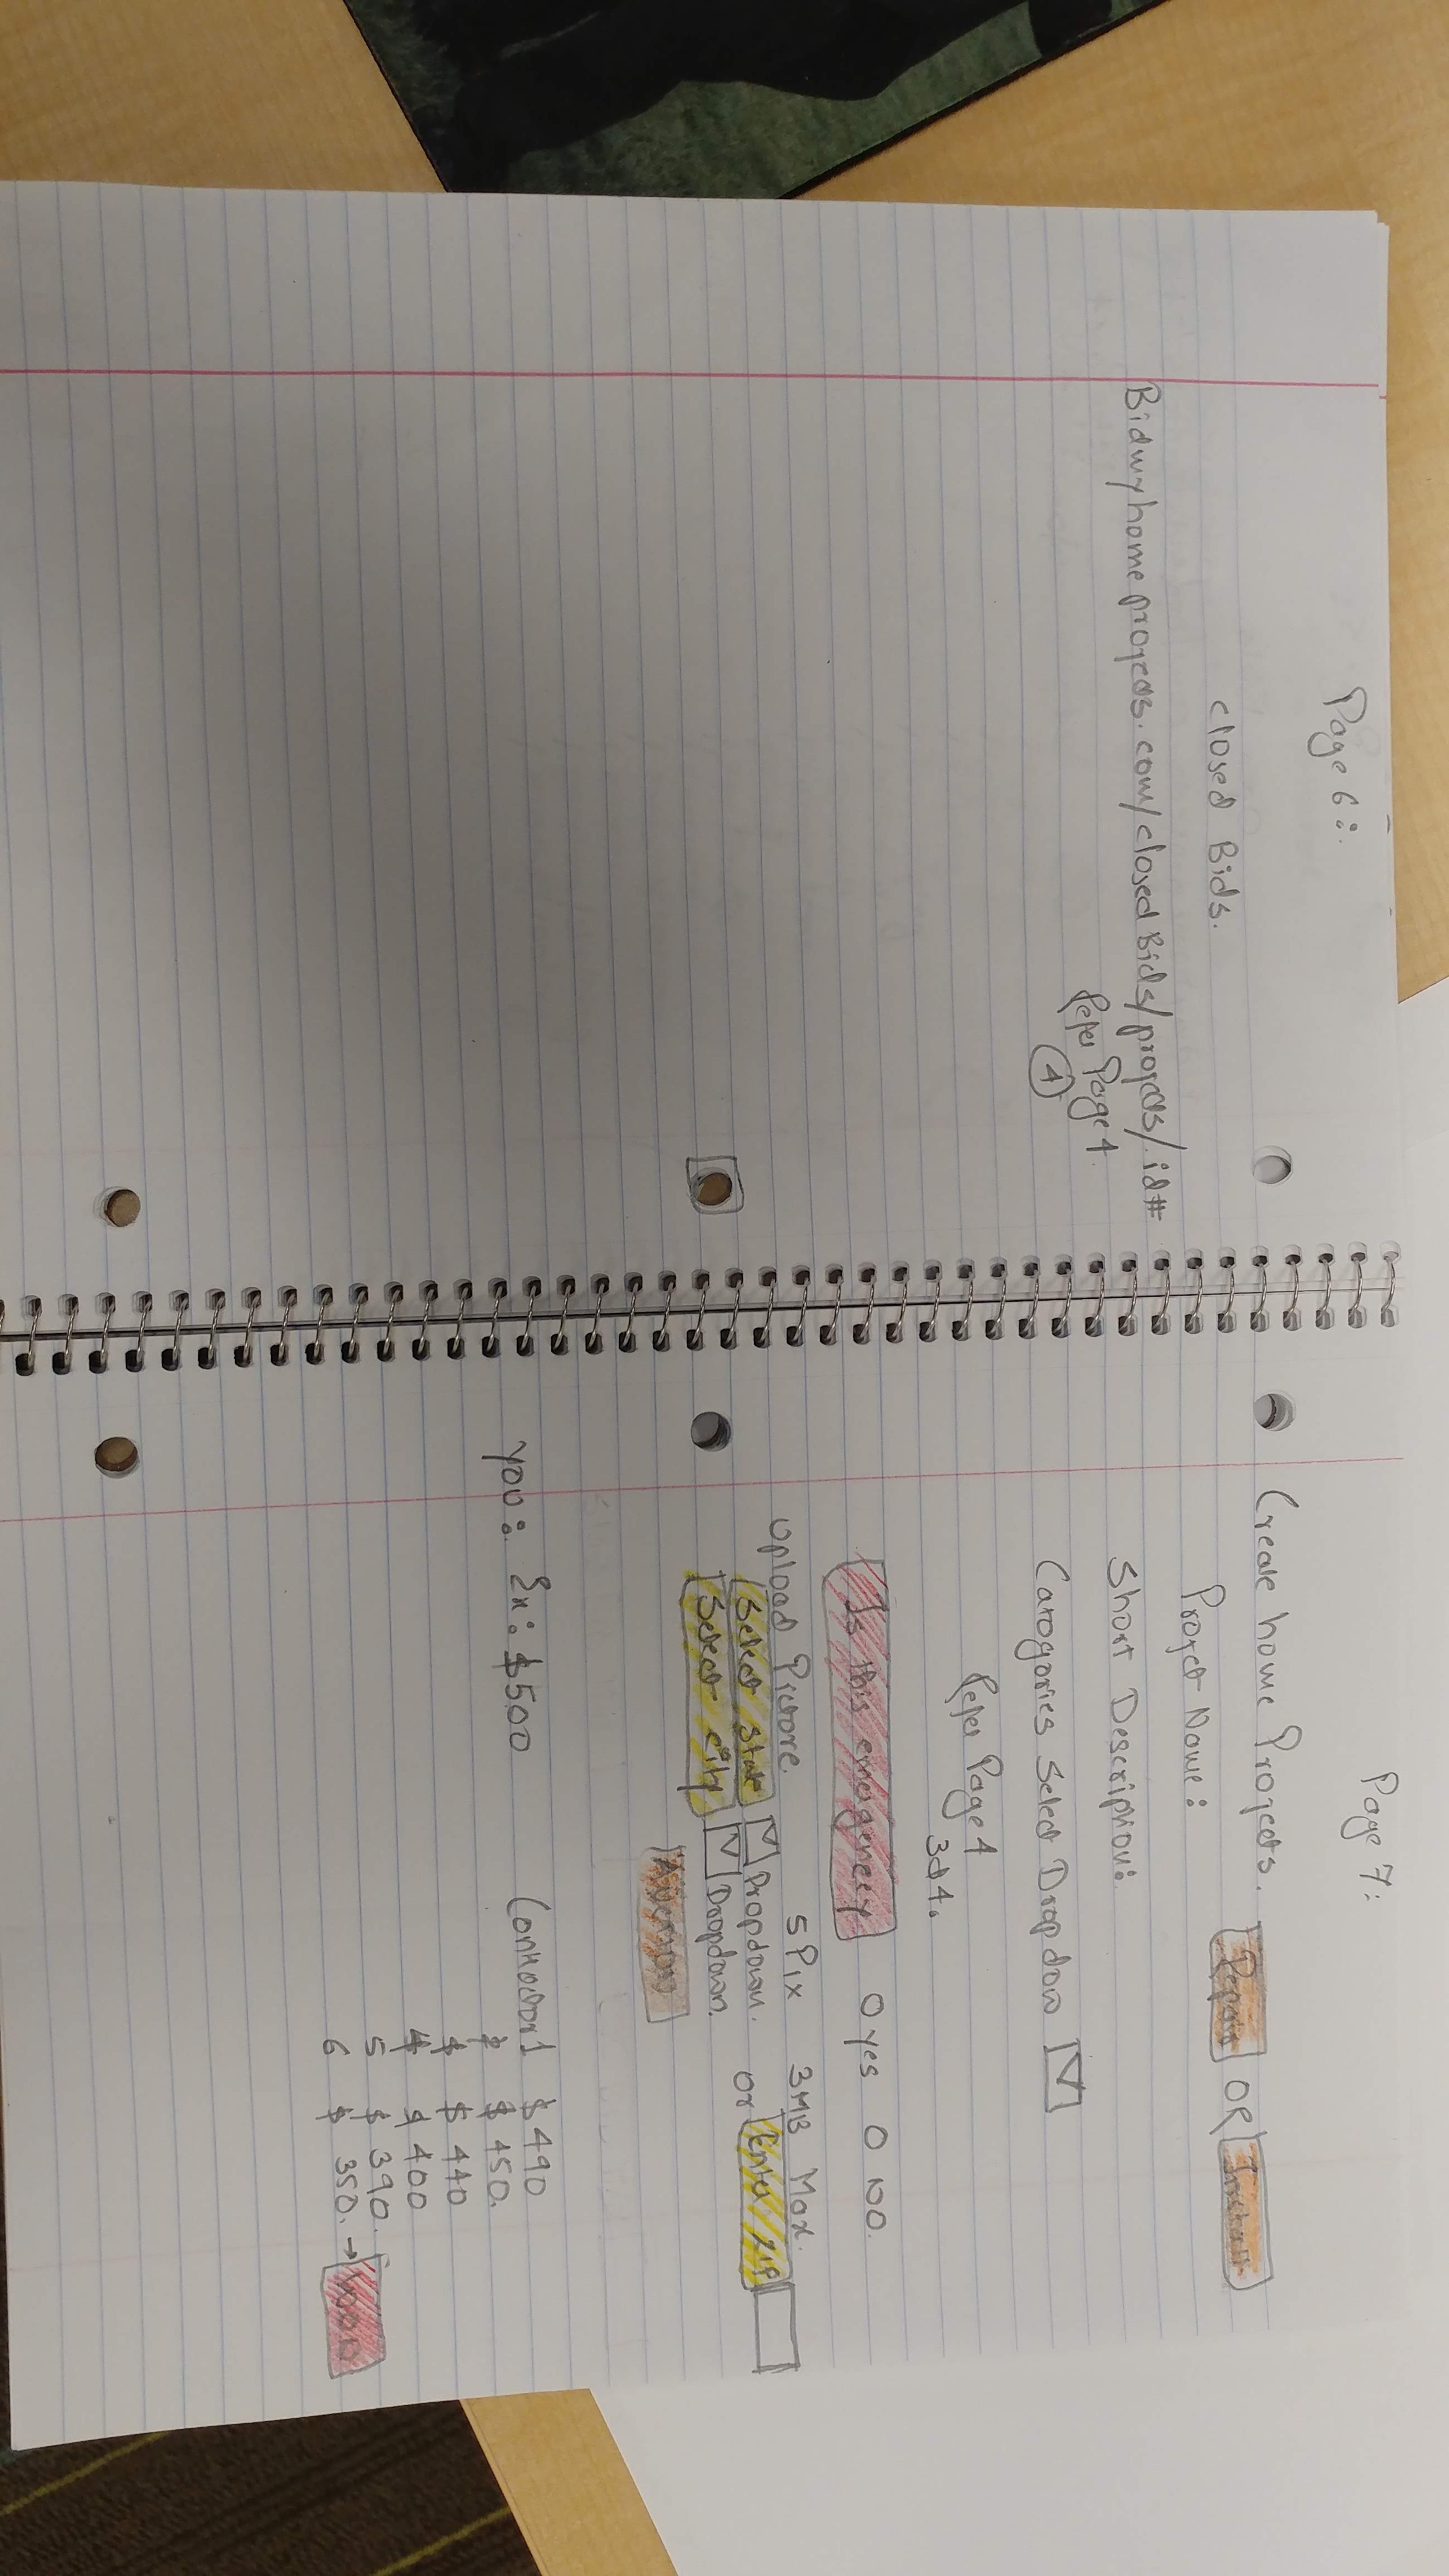 Page 6:
Closed Bids.
Bidmyhomeprojects.com/closedBids/projects/.id#
Refer Page 4.
4
Page 7:
Create home Projects.
Repair OR Install
Project Name:
Short Description:
Catogories Select Dropdow
Refer Page 4
3&4.
Is this emergency O yes O NO.
Upload Picture. 5 Pix 3MB Max.
Select State Dropdown. or Enter ZIP
Select City Dropdown.
AUCTION
you: Ex: $500 Contractor 1 $490
2 $ 450.
$ 440
4 $ 400
5 $ 390.
6 $ 350. →